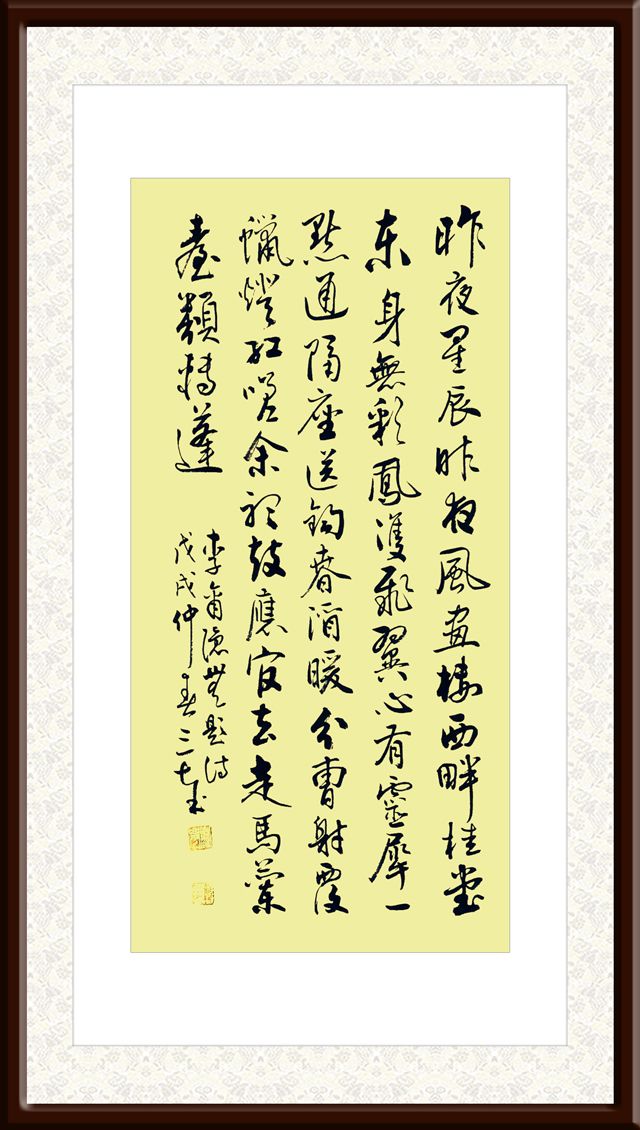 昨夜星辰昨夜風畫樓西畔桂堂
东身無彩鳳雙飛翼心有靈犀一
點通隔座送鉤春酒暖分曹射覆
蠟燈紅嗟余聽鼓應官去走馬蘭
臺類轉蓬
李商隱無題詩
戊戌仲春三七书